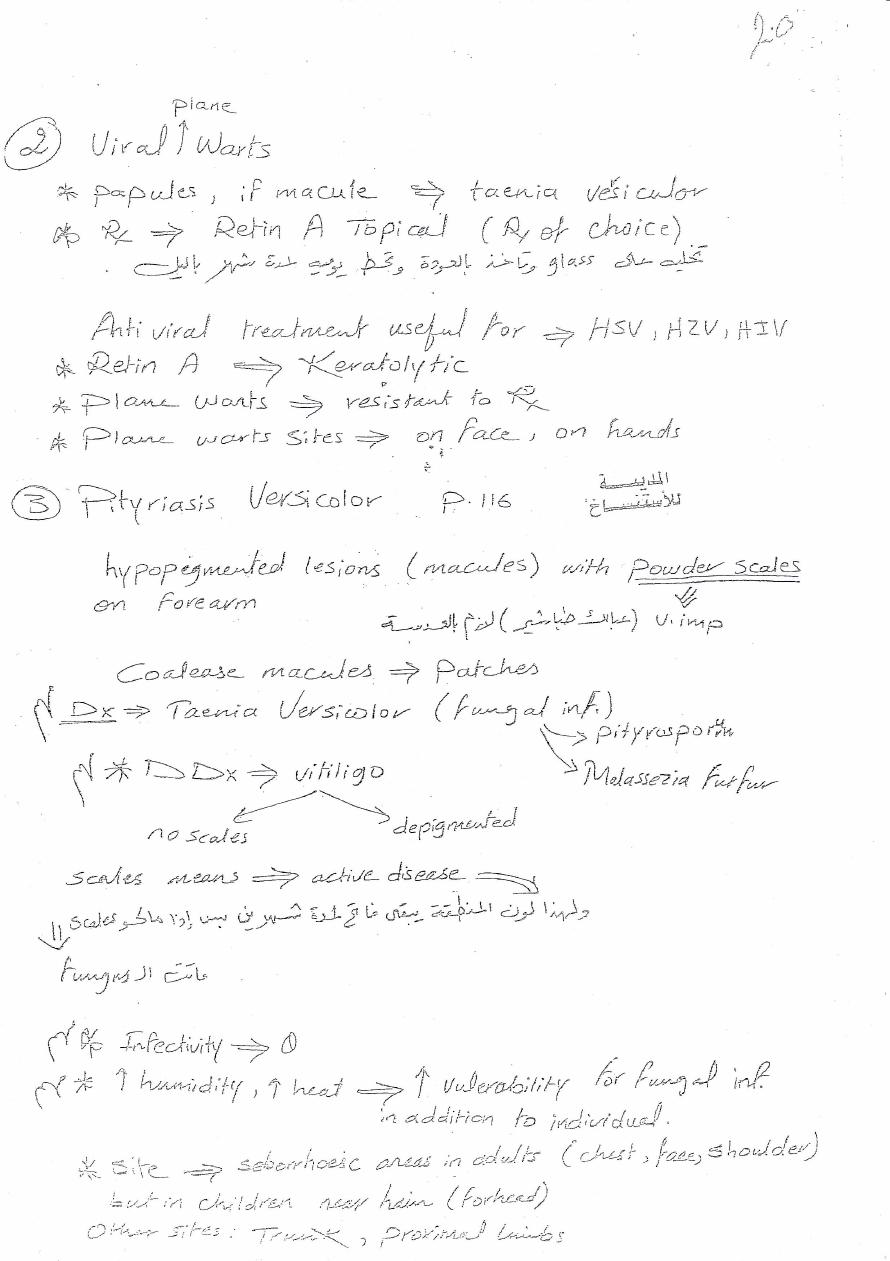 20
plane
② Viral ↑ Warts
* papules, if macule ⇒ taenia vesiculor
* Rx ⇒ Retin A Topical (Rx of choice)
تخليه على glass وتاخذ بالعودة وتحط يوميه لمدة شهر بالليل.
Anti viral treatment useful for ⇒ HSV, HZV, HIV
* Retin A ⇒ Keratolytic
* Plane warts ⇒ resistant to Rx
* Plane warts sites ⇒ on face, on hands
③ Pityriasis Versicolor P. 116
المدينة
للأستنساخ
hypopegmented lesions (macules) with Powder scales
on Forearm
V. imp (عبالك طباشير) لازم بالعدسة
Coalease macules ⇒ Patches
Dx ⇒ Taenia Versicolor (fungal inf.)
→ pityrosporum
→ Malassezia furfur
* DDx ⇒ vitiligo
no scales
depigmented
scales means ⇒ active disease
ولهذا لون المنطقة يبقى فاتح لمدة شهرين بس إذا ماكو scales
ماتت الـ Fungus
* Infectivity ⇒ 0
* ↑ humidity, ↑ heat ⇒ ↑ Vulerability for fungal inf.
in addition to individual.
* Site ⇒ seborrhoeic areas in adults (chest, face, shoulder)
but in children near hair (forhead)
Other sites: Trunk, proximal limbs